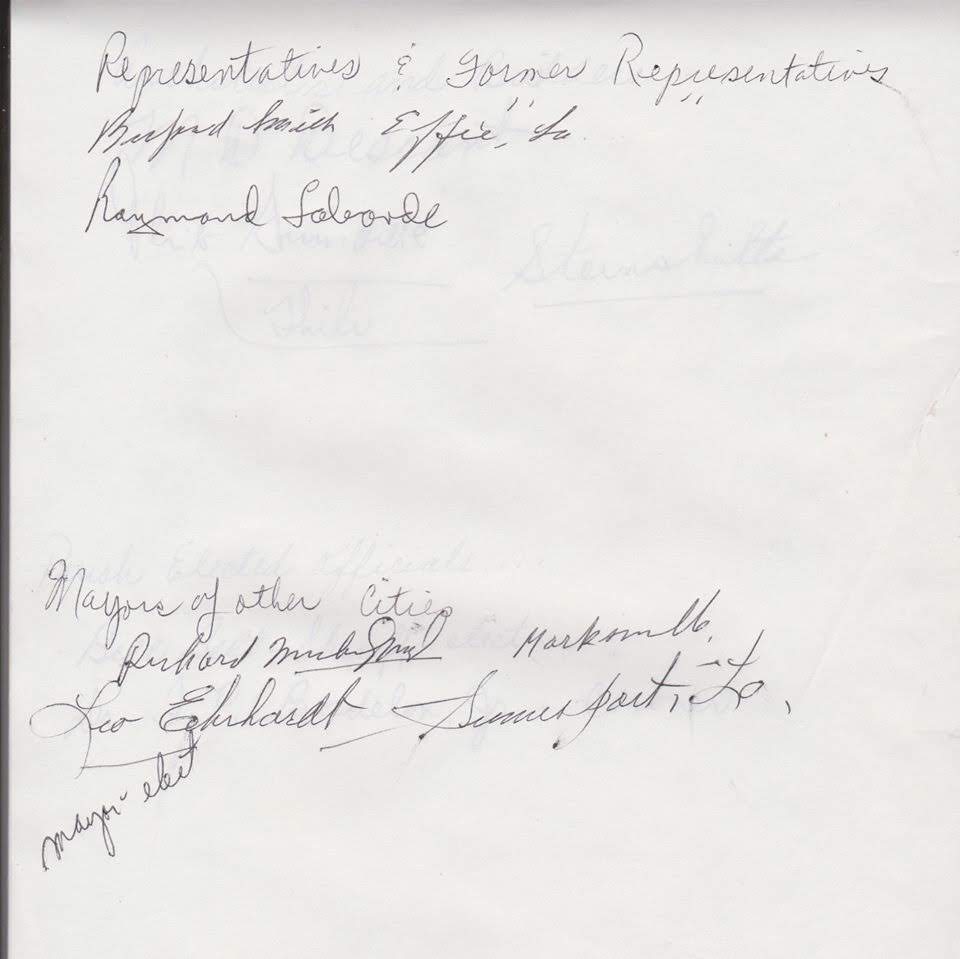 Representatives & Former Representatives
Buford Smith Effie, La.
Raymond Laborde
Mayors of other Cities
Richard Marksville.
Leo Ehrhardt Simmesport, La.
mayor-elect